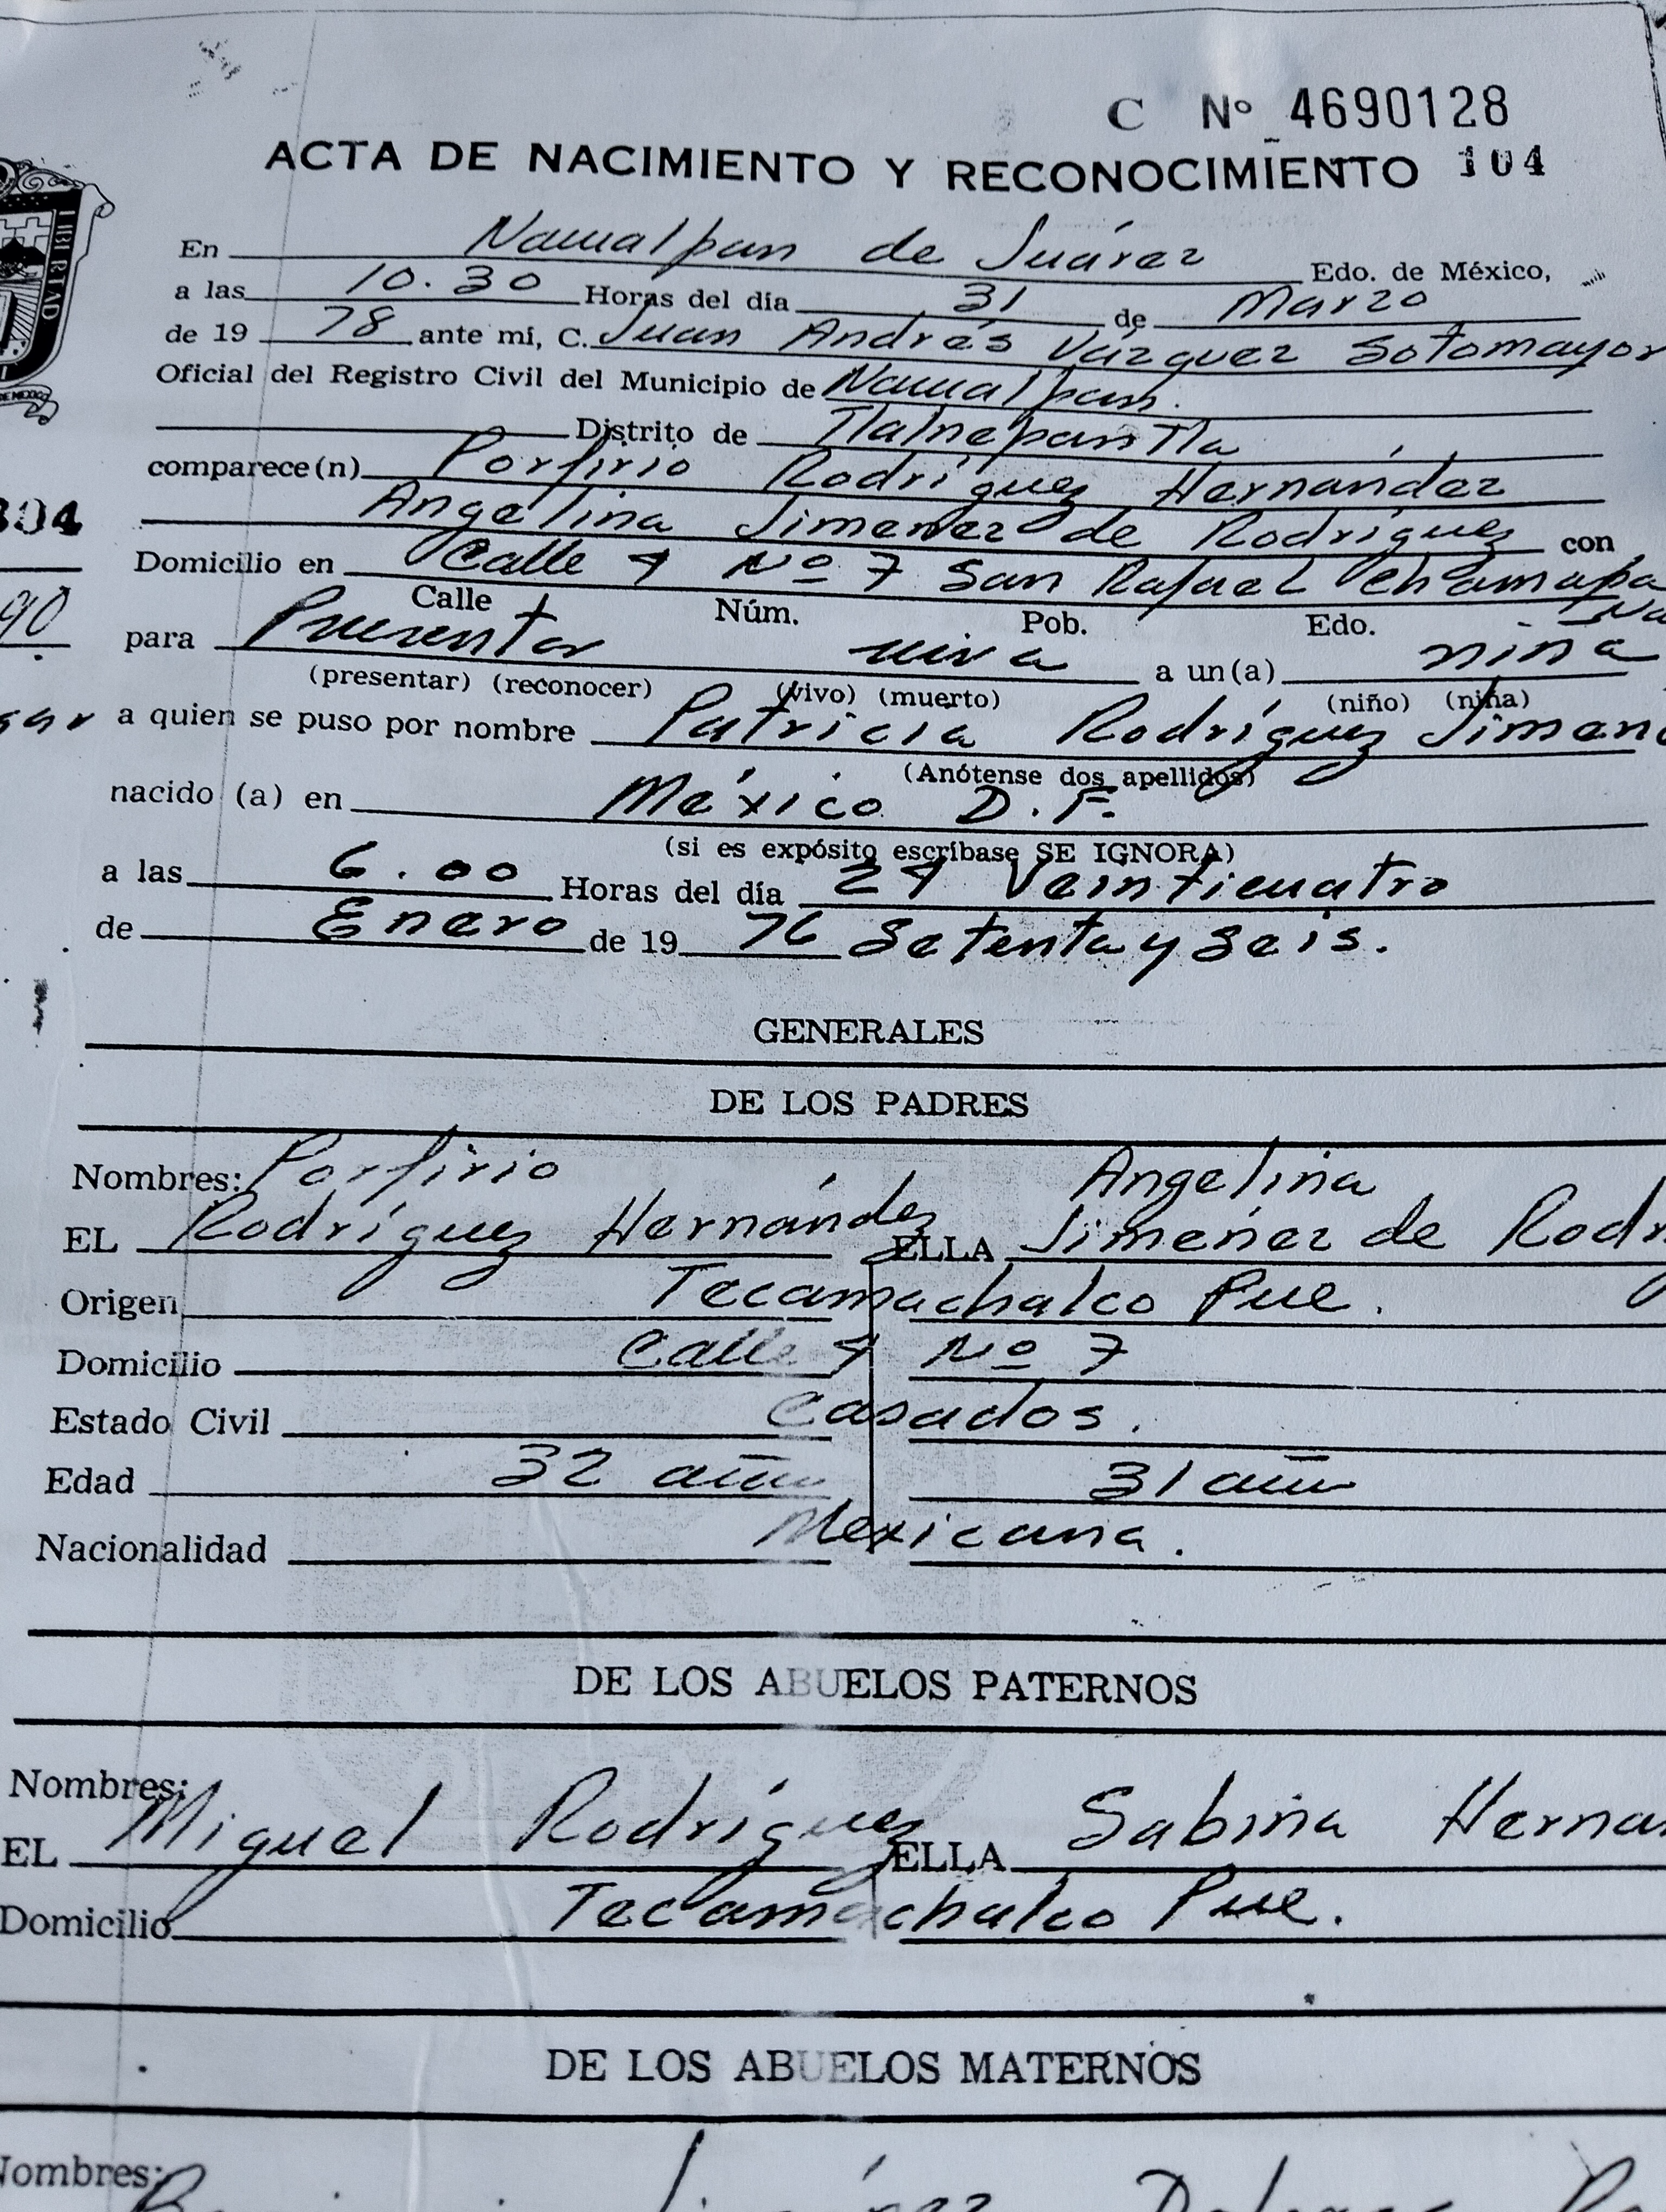 C Nº 4690128
ACTA DE NACIMIENTO Y RECONOCIMIENTO 104
LIBERTAD
En Naucalpan de Juárez Edo. de México,
a las 10.30 Horas del día 31 de Marzo
de 19 78 ante mí, C. Juan Andrés Vázquez Sotomayor
Oficial del Registro Civil del Municipio de Naucalpan.
Distrito de Tlalnepantla
comparece(n) Porfirio Rodríguez Hernández
304
Angelina Jimenez de Rodríguez con
Domicilio en Calle 4 Nº 7 San Rafael Chamapa
Calle Núm. Pob. Edo.
90
para Presentar viva a un(a) niña
(presentar) (reconocer) (vivo) (muerto) (niño) (niña)
a quien se puso por nombre Patricia Rodríguez Jimen
(Anótense dos apellidos)
nacido (a) en México D.F.
(si es expósito escríbase SE IGNORA)
a las 6.00 Horas del día 24 Veinticuatro
de Enero de 19 76 Setenta y Seis.
GENERALES
DE LOS PADRES
Nombres: Porfirio Angelina
EL Rodríguez Hernández ELLA Jimenez de Rodr
Origen Tecamachalco Pue.
Domicilio Calle 4 Nº 7
Estado Civil Casados.
Edad 32 años 31 años
Nacionalidad Mexicana.
DE LOS ABUELOS PATERNOS
Nombres:
EL Miguel Rodríguez ELLA Sabina Herna
Domicilio Tecamachalco Pue.
DE LOS ABUELOS MATERNOS
Nombres: